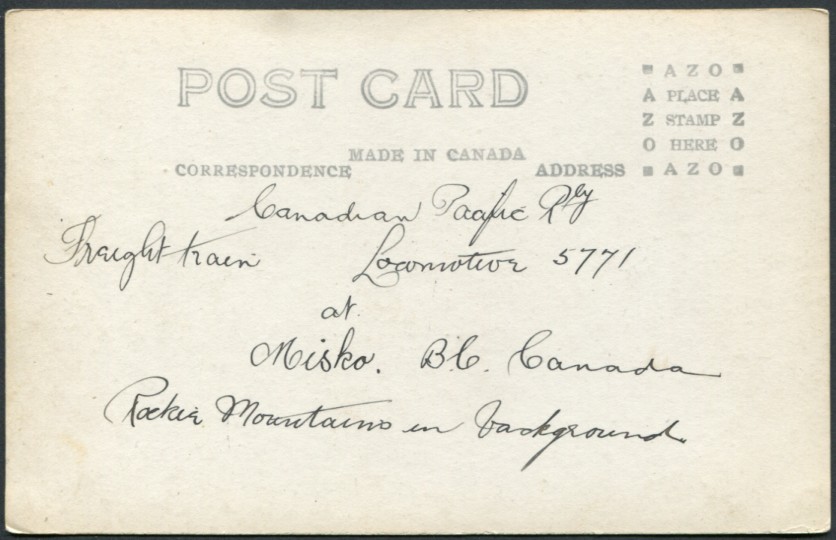 POST CARD
MADE IN CANADA
CORRESPONDENCE
ADDRESS
AZO
A PLACE A
Z STAMP Z
O HERE O
AZO
Canadian Pacific Rly
Freight train Locomotive 5771
at
Misko. B.C. Canada
Rockie Mountains in background.